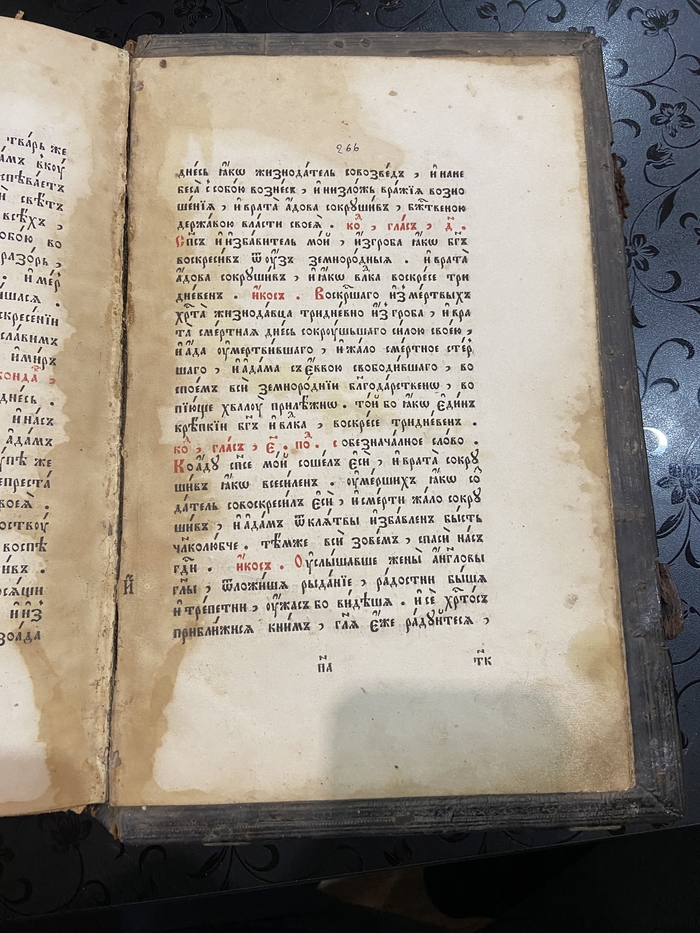 тва́рь же
спѣва́етъ
и҆ свѣ́тъ
всѣ́хъ ,
собо́ю во
разо́рь ,
. и҆ ме́р
скресе́нїи
сла́вимъ
и҆ ми́нръ
конда́ ,
дне́сь .
и҆ на́съ
а҆да́мъ
ꙋ́пѣ же
воспѣ̀
266
дне́сь ꙗ҆́кѡ жизнода́тель совозве́дъ , и҆ нане
беса̀ с̾ собо́ю возне́съ , и҆ низло́жь вра́жїѧ возно
ше́нїѧ , и҆ врата̀ а҆́дова сокрꙋши́въ , бж҃твеною
держа́вою вла́сти своеѧ̀ . ко̑ , гла́съ , д҃ .
Сп҃съ и҆ и҆зба́витель мо́й , и҆з̾гро́ба ꙗ҆́кѡ бг҃ъ
воскреси́въ ѿ ᲂу҆́зъ земноро́дныѧ . и҆ врата̀
а҆́дова сокрꙋши́въ , и҆ ꙗ҆́кѡ влⷣка воскре́се три
дне́венъ . и҆́косъ . Воскр҃шаго и҆з̾ ме́ртвыхъ
хрⷭ҇та̀ жизнода́вца тридне́вно и҆з̾ гро́ба , и҆ вра
та̀ сме́ртнаѧ дне́сь сокроуши́вшаго си́лою свое́ю ,
и҆ а҆́да ᲂу҆мертви́вшаго , и҆ жа́ло сме́ртное сте́р
шаго , и҆ а҆да́ма съ є҆́ввою свободи́вшаго , во
спое́мъ всѝ земноро́днїи бл҃года́рственѡ , во
пїю́ще хвалоу̀ приле́жнѡ . то́й бо ꙗ҆́кѡ є҆ди́нъ
крѣ́пкїи бг҃ъ и҆ влⷣка , воскре́се тридне́венъ .
ко̑ , гла́съ , є҃ . по̑ . собезнача́лное сло́во .
Ко а҆́дꙋ сп҃се мо́й соше́лъ є҆сѝ , и҆ врата̀ сокрꙋ
ши́въ ꙗ҆́кѡ всеси́ленъ . ᲂу҆ме́ршихъ ꙗ҆́кѡ со
да́тель совоскреси́лъ є҆сѝ , и҆ сме́рти жа́ло сокрꙋ
ши́въ , и҆ а҆да́мъ ѿ клѧ́твы и҆зба́вленъ бы́сть
чл҃колю́бче . тѣ́мже всѝ зове́мъ , спасѝ на́съ
гдⷭ҇и . и҆́косъ . Оу҆слы́шавше жены̀ а҆́нг҃ловы
гл҃ы , ѿложи́ша рыда́нїе , ра́достни бы́ша
и҆ тре́петни , ᲂу҆́жасъ бо ви́дѣша . и҆ сѐ хрⷭ҇то́съ
прибли́жисѧ кни́мъ , гл҃ѧ є҆́же ра́дꙋйтесѧ ,
п҃а